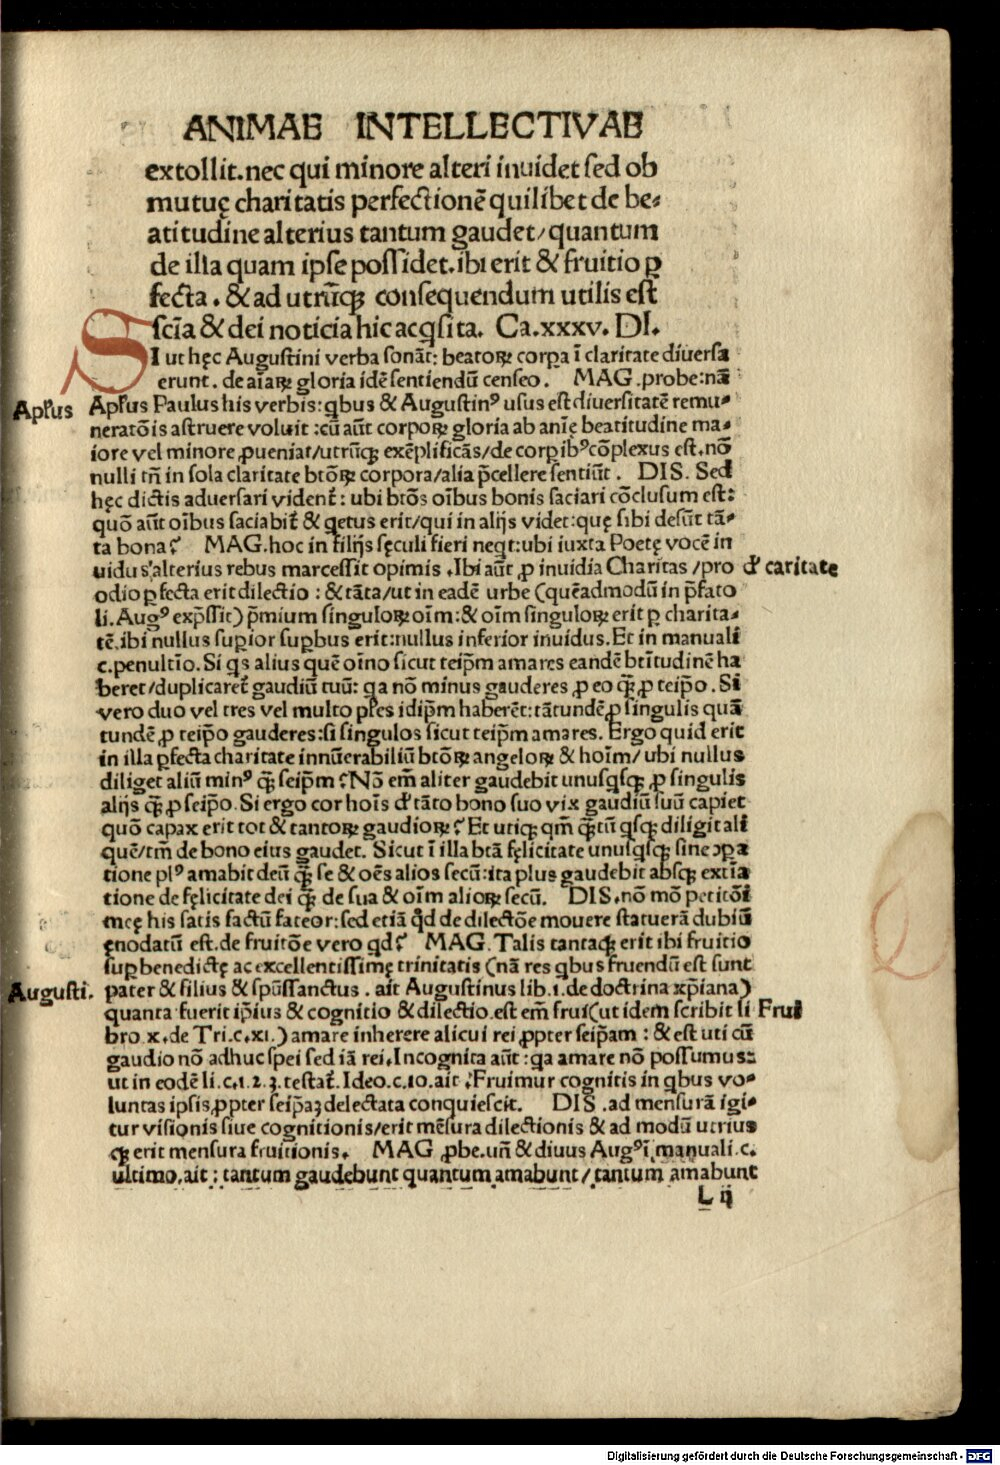 ANIMAE INTELLECTIVAE
extollit.nec qui minore alteri inuidet sed ob
mutuę charitatis perfectionē quilibet de be⸗
atitudine alterius tantum gaudet/quantum
de illa quam ipse possidet.ibi erit & fruitio ꝑ
fecta. & ad utrūqꝫ consequendum utilis est
scīa & dei noticia hic acq̄sita. Ca.xxxv. DI.
SI ut hęc Augustini verba sonāt: beatoꝝ corpa ī claritate diuersa
erunt. de aīaꝝ gloria idē sentiendū censeo. MAG.probe:nā
Apłus Apłus Paulus his verbis:qbus & Augustinꝰ usus est diuersitatē remu⸗
neratōis astruere voluit:cū aūt corpoꝝ gloria ab anię beatitudine ma⸗
iore vel minore ꝓueniat/utrūqꝫ exēplificās/de corpibꝰ cōplexus est.nō
nulli tñ in sola claritate btōꝝ corpora/alia p̄cellere sentiūt. DIS. Sed
hęc dictis aduersari vident̄: ubi btōs oībus bonis saciari cōclusum est:
quō aūt oībus saciabit̄ & qetus erit/qui in alijs videt:quę sibi desūt tā⸗
ta bona? MAG.hoc in filijs sęculi fieri neqt:ubi iuxta Poetę vocē in
uidus alterius rebus marcessit opimis.Ibi aūt ꝓ inuidia Charitas/pro đ caritate
odio ꝑfecta erit dilectio: & tāta/ut in eadē urbe (quēadmodū in p̄fato
li. Augꝰ exp̄ssit) p̄mium singuloꝝ oīm:& oīm singuloꝝ erit ꝑ charita⸗
tē.ibi nullus supior supbus erit:nullus inferior inuidus.Et in manuali
c.penultīo.Si qs alius quē oīno sicut teip̄m amares eandē btītudinē ha
beret/duplicaret̄ gaudiū tuū: qa nō minus gauderes ꝓ eo qꝫ̄ ꝓ teip̄o. Si
vero duo vel tres vel multo płes idip̄m haberēt:tātundē ꝓ singulis quā
tundē ꝓ teip̄o gauderes:si singulos sicut teip̄m amares. Ergo quid erit
in illa ꝑfecta charitate innūerabiliū btōꝝ angeloꝝ & hoīm/ubi nullus
diliget aliū minꝰ qꝫ̄ seip̄m? Nō em̄ aliter gaudebit unusqsqꝫ ꝓ singulis
alijs qꝫ̄ ꝓ seip̄o. Si ergo cor hoīs đ tāto bono suo vix gaudiū suū capiet
quō capax erit tot & tantoꝝ gaudioꝝ? Et utiqꝫ qm̄ qꝫ̄tū qsqꝫ diligit ali
quē/tm̄ de bono eius gaudet. Sicut ī illa btā fęlicitate unusqsqꝫ sine ɔꝑa
tione plꝰ amabit deū qꝫ̄ se & oēs alios secū:ita plus gaudebit absqꝫ extīa
tione de fęlicitate dei qꝫ̄ de sua & oīm alioꝝ secū. DIS.nō mō petitōi
meę his satis factū fateor:sed etiā qđ de dilectōe mouere statuerā dubiū
enodatū est.de fruitōe vero qd? MAG.Talis tantaqꝫ erit ibi fruitio
supbenedictę ac excellentissimę trinitatis (nā res qbus fruendū est sunt
Augusti. pater & filius & spūssanctus. ait Augustinus lib.1.de doctrina xp̄iana)
quanta fuerit ip̄ius & cognitio & dilectio.est em̄ frui(ut idem scribit li Frui
bro.x.de Tri.c.xi.) amare inherere alicui rei ꝓpter seip̄am: & est uti cū
gaudio nō adhuc spei sed iā rei.Incognita aūt:qa amare nō possumus:
ut in eodē li.c.1.2.3.testat̄.Ideo.c.10.ait:Fruimur cognitis in qbus vo⸗
luntas ipsis ꝓpter seip̄aꝫ delectata conquiescit. DIS.ad mensurā igi⸗
tur visionis siue cognitionis/erit mēsura dilectionis & ad modū utrius
qꝫ erit mensura fruitionis. MAG ꝓbe.uñ & diuus Augꝰ ī manuali.c.
ultimo.ait: tantum gaudebunt quantum amabunt/tantum amabunt
L ij
Digitalisierung gefördert durch die Deutsche Forschungsgemeinschaft - DFG